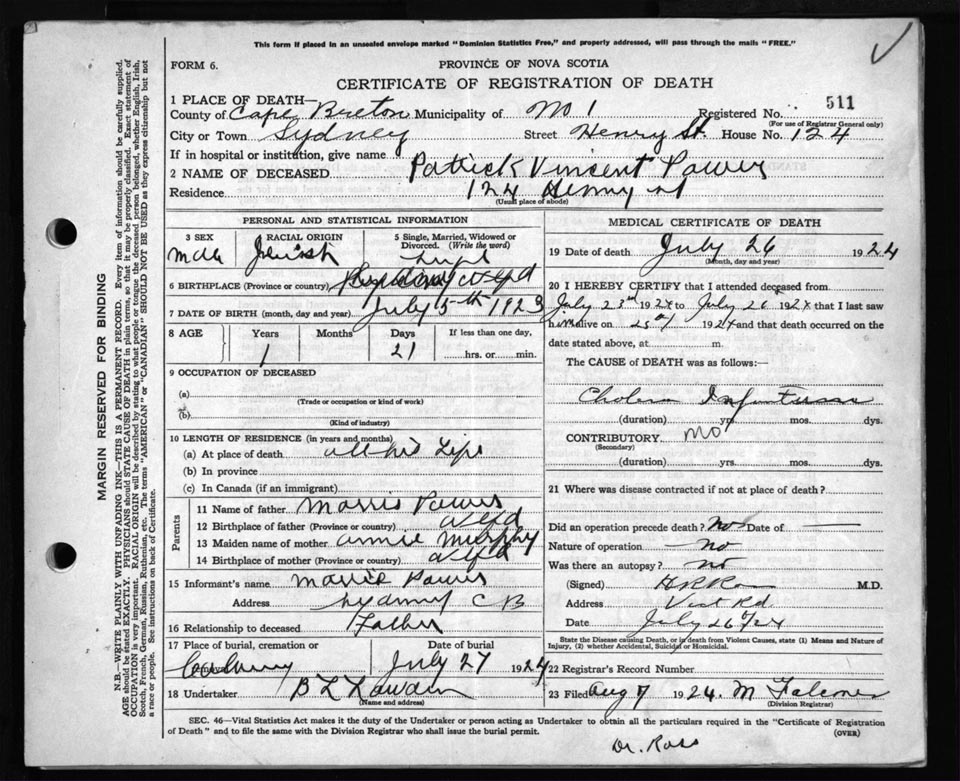 This form if placed in an unsealed envelope marked "Dominion Statistics Free," and properly addressed, will pass through the mails "FREE."
FORM 6.
PROVINCE OF NOVA SCOTIA
CERTIFICATE OF REGISTRATION OF DEATH
1 PLACE OF DEATH—
County of Cape Breton Municipality of No 1 Registered No. 511
(For use of Registrar General only)
City or Town Sydney Street Henry St. House No. 124
If in hospital or institution, give name
2 NAME OF DECEASED Patrick Vincent Power
Residence 124 Henry St
(Usual place of abode)
PERSONAL AND STATISTICAL INFORMATION
3 SEX Male
RACIAL ORIGIN Irish
5 Single, Married, Widowed or Divorced. (Write the word)
6 BIRTHPLACE (Province or country)
7 DATE OF BIRTH (month, day and year) July 5th 1923
8 AGE Years 1 Months Days 21 If less than one day, hrs. or min.
9 OCCUPATION OF DECEASED
(a)
(Trade or occupation or kind of work)
(b)
(Kind of industry)
10 LENGTH OF RESIDENCE (in years and months)
(a) At place of death all his Life
(b) In province
(c) In Canada (if an immigrant)
Parents
11 Name of father Morris Power
12 Birthplace of father (Province or country) Nfld
13 Maiden name of mother Annie Murphy
14 Birthplace of mother (Province or country) Nfld
15 Informant's name Power
Address Sydney C B
16 Relationship to deceased Father
17 Place of burial, cremation or
Date of burial July 27 1924
18 Undertaker
(Name and address)
MEDICAL CERTIFICATE OF DEATH
19 Date of death July 26 1924
(Month, day and year)
20 I HEREBY CERTIFY that I attended deceased from
July 23rd 1924 to July 26 1924 that I last saw
him alive on 25 of 1924 and that death occurred on the
date stated above, at m.
The CAUSE of DEATH was as follows:
Cholera Infantum
(duration) yrs. mos. dys.
CONTRIBUTORY no
(Secondary)
(duration) yrs. mos. dys.
21 Where was disease contracted if not at place of death?
Did an operation precede death? No Date of
Nature of operation no
Was there an autopsy? no
(Signed) M.D.
Address Rd.
July 26/24
State the Disease causing Death, or in death from Violent Causes, state (1) Means and Nature of Injury, (2) whether Accidental, Suicidal or Homicidal.
22 Registrar's Record Number
23 Filed Aug 7 1924. M
(Division Registrar)
SEC. 46—Vital Statistics Act makes it the duty of the Undertaker or person acting as Undertaker to obtain all the particulars required in the "Certificate of Registration
of Death" and to file the same with the Division Registrar who shall issue the burial permit. (OVER)
Dr. Ross
MARGIN RESERVED FOR BINDING
N.B.—WRITE PLAINLY WITH UNFADING INK—THIS IS A PERMANENT RECORD. Every item of information should be carefully supplied.
AGE should be stated EXACTLY. PHYSICIANS should STATE CAUSE OF DEATH in plain terms, so that it may be properly classified. Exact statement of
OCCUPATION is very important. RACIAL ORIGIN will be described by stating to what people or tongue the deceased person belonged, whether English, Irish,
Scotch, French, German, Russian, Ruthenian, etc. The terms "AMERICAN" or "CANADIAN" SHOULD NOT BE USED as they express citizenship but not
a race or people. See instructions on back of Certificate.